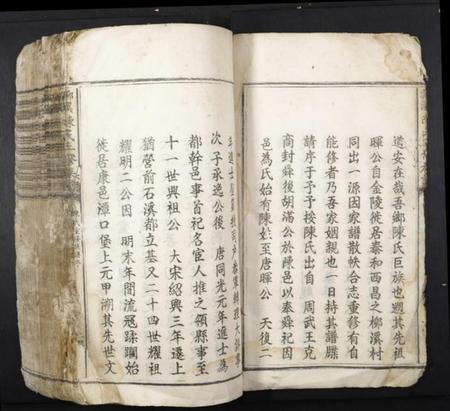 遺安在哉吾鄉陳氏巨族也遡其先祖
暉公自金陵徙居泰和西昌之柳溪村
同出一源因家譜散帙合志重修有自
能修者乃吾家姻親也一日持其譜牒
請序于予予按陳氏出自 周武王克
商封舜後胡滿公於陳邑以奉舜祀因
邑為氏始有陳姓至唐暉公 天復二
年進士
次子承逸公後 唐同光元年進士為
都幹邑事首祀名宦人推之領縣事至
十一世興祖公 大宋紹興三年遷上
猶營前石溪都立基又二十四世耀祖
耀明二公因 明末年間流冦蹂躪始
徙居康邑潭口堡上元甲溯其先世文